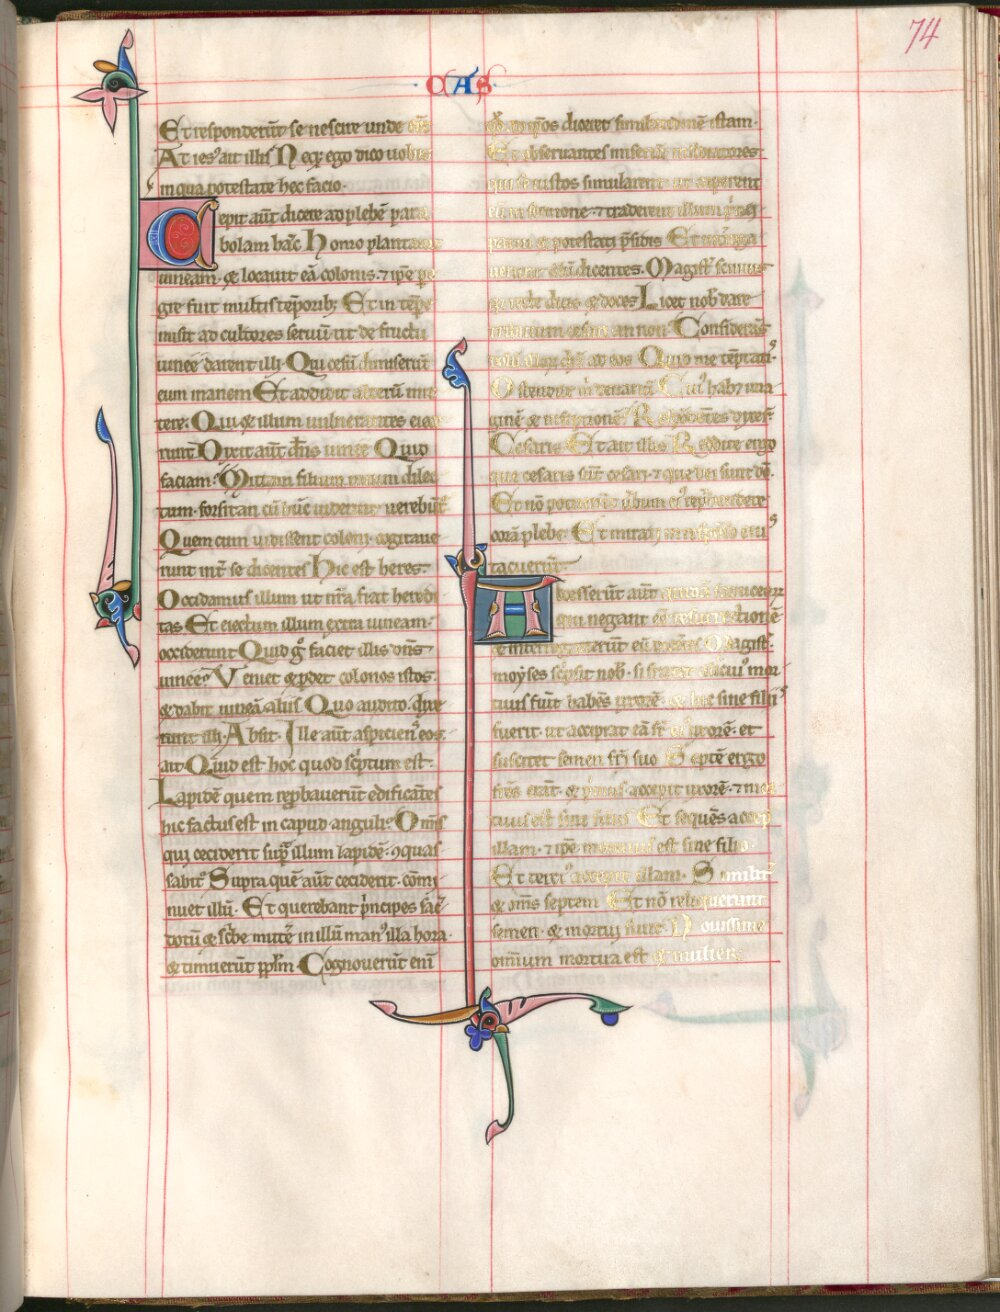 74
CAS
Et responderūt se nescire unde eēt
At ies' ait illis Neqȝ ego dico uobis
in qua potestate hec facio.
Cepit aūt dicere ad plebē para
bolam hāc Homo plantauit
uineam. & locauit eā colonis. ⁊ ip̄e pe
gre fuit multis tēporibȝ Et in tēpr̄e
misit ad cultores seruū ut de fructu
uinee darent illi. Qui cesū dimiserūt
eum inanem Et addidit alterū mit
tere. Qui & illum uulnerantes eiece
runt Dixit aūt dn̄s uinee Quid
faciam. Mittam filium meum dilec
tum. forsitan cū hūc uiderint uerebūt̄
Quem cum uidissent coloni cogitaue
runt int̄ se dicentes Hic est heres.
Occidamus illum ut nr̄a fiat heredi
tas Et eiectum illum extra uineam.
occiderunt Quid g̊ faciet illis dn̄s
uinee Veniet & pdet colonos istos
& dabit uineā aliis Quo audito. dixe
runt illi. Absit. Ille aūt aspiciens eos
ait Quid est hoc quod scͥptum est.
Lapidē quem rep̱bauerūt edificātes
hic factus est in capud anguli. Om̄is
qui ceciderit sup̱ illum lapidē. ꝯquas
sabit² Supra quē aūt ceciderit. cōmi
nuet illū. Et querebant pͥncipes sac̄
dotū & scͥbe mitte in illū man' illa hora.
& timuerūt pp̄lm Cognouerūt eni
qd ad ip̄os diceret similitudinē istam.
Et obseruantes miserūt insidiatores
qui se iustos simularent ut caperent
eū in sermone. ⁊ traderent illum pͥnci
patui & potestati p̄sidis Et
dicentes. Magist̄ scimus
quia recte dicis & doces Licet nob̄ dare
tributum cesari an non Considerās
dolū illoꝝ dix̄ ad eos Quid me tēptatis
Ostendite m̄ denariū Cui' habȝ ima
ginē & inscͥptionē Respōdētes dixert̄
Cesaris Et ait illis Reddite ergo
que cesaris sūt cesari. ⁊ que dei sunt dō.
Et nō potuerūt ūbum ei' rep̱hendere
corā plebe. Et mirati in respōso ei'
tacuerūt
Accesserūt aūt quidā saduceorȝ
qui negant eē resurrectionē
& interrogauerūt eū dicētes Magist̄.
moyses scͥpsit nob̄. si frater alicui' mor
tuus fuīt habēs uxorē. & hic sine filii'
fuerit. ut accipiat eā fr̄ ei' uxorē. et
suscitet semen fr̄i suo Septē ergo
fr̄es erāt. & pͥmus accepit uxorē. ⁊ mor
tuus est sine filiis Et sequēs accep̄
illam. ⁊ ip̄e mortuus est sine filio.
Et terci' accepit illam. Similit̄
& om̄s septem Et nō reliquerunt
semen. & mortui sunt. Nouissime
omnium mortua est & mulier.